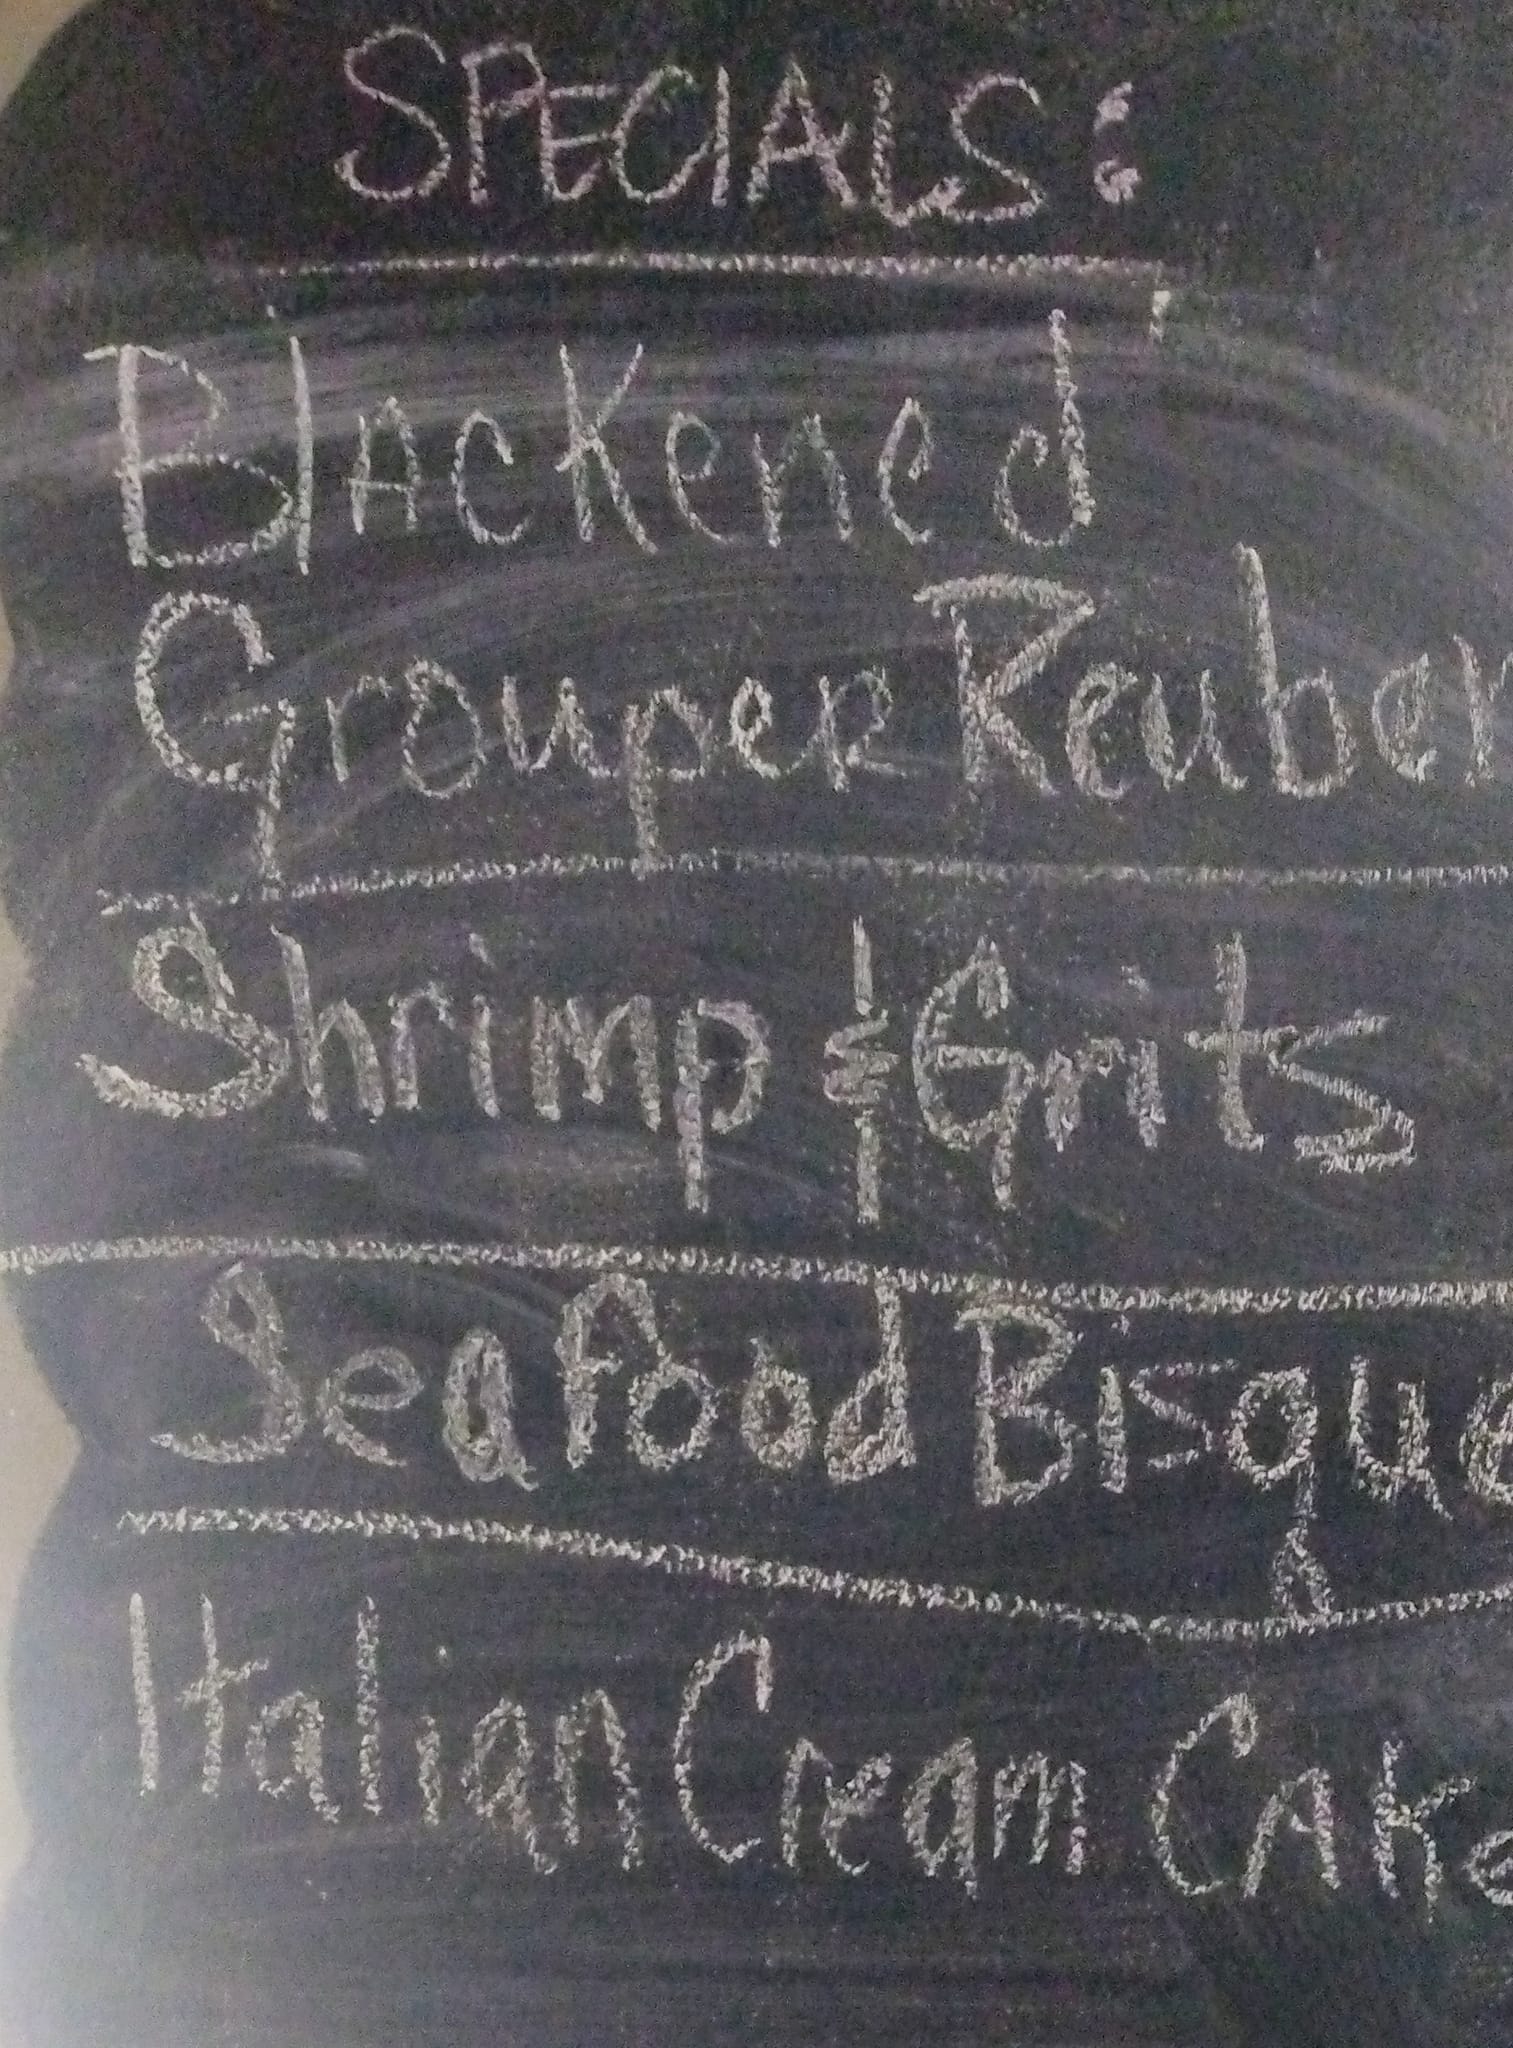 SPECIALS:
Blackened
Grouper Reuben
Shrimp & Grits
Seafood Bisque
Italian Cream Cake